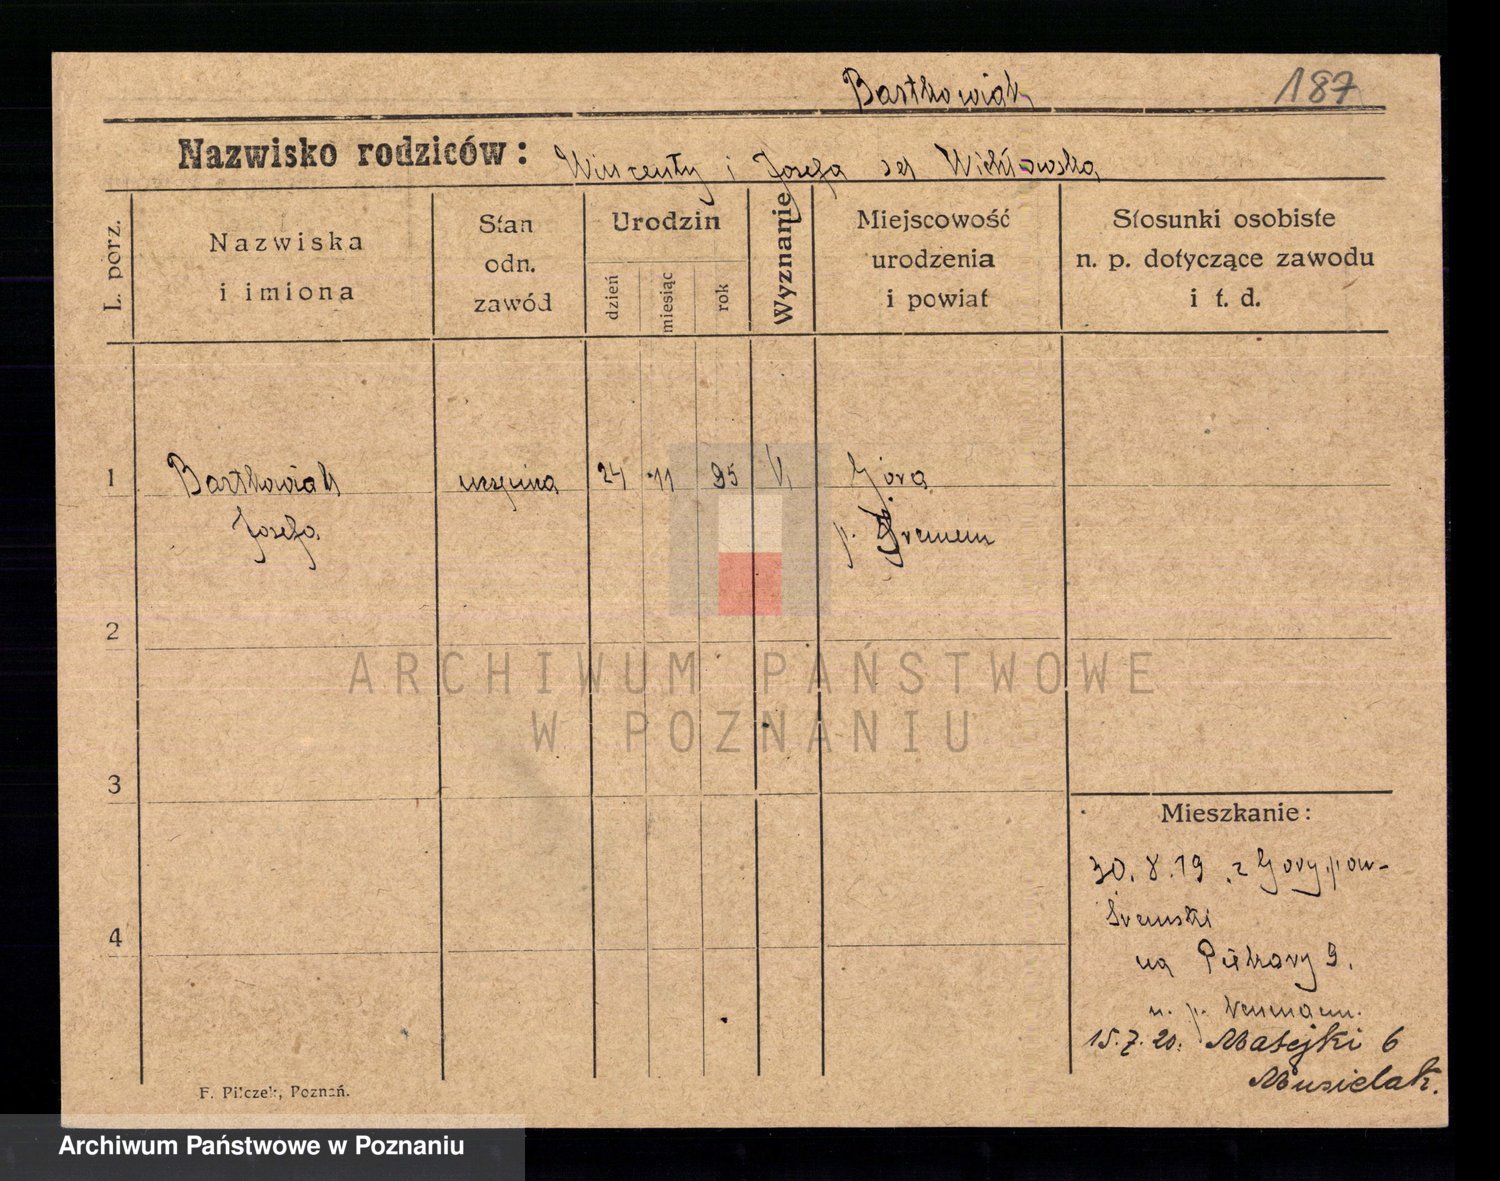 Bartkowiak 187
Nazwisko rodziców: Wincenty i Józefa
L. porz.
Nazwiska
i imiona
Stan
odn.
zawód
Urodzin
dzień
miesiąc
rok
Wyznanie
Miejscowość
urodzenia
i powiat
Stosunki osobiste
n. p. dotyczące zawodu
i t. d.
1 Bartkowiak 24 11 95 Góra
Józefa p. Śremem
2
ARCHIWUM PAŃSTWOWE
W POZNANIU
3
Mieszkanie:
30. 8. 19 z Góry, pow-
Śremski
4
na Piekary 9.
n. p. Neumann.
15.7.20. Matejki 6
Musielak.
F. Pilczek, Poznań.
Archiwum Państwowe w Poznaniu